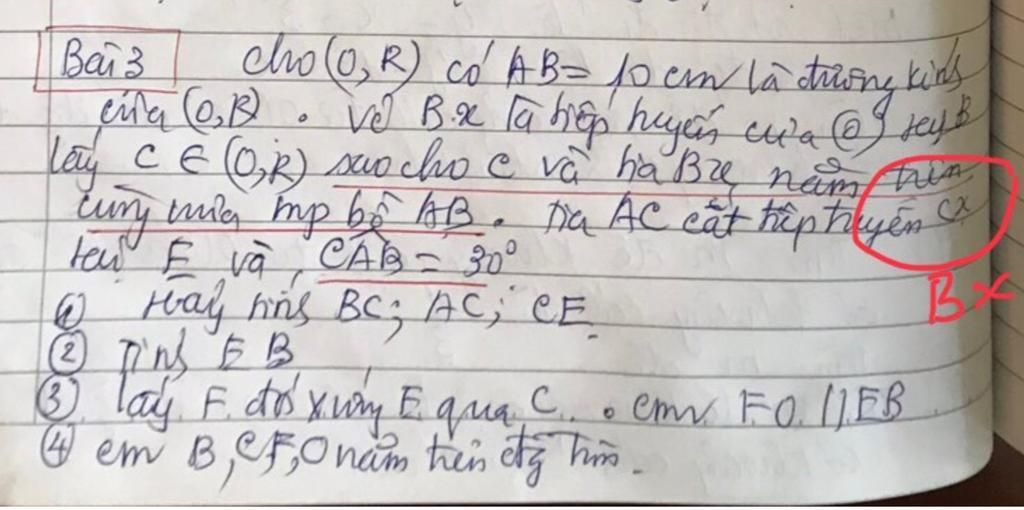 Bài 3 cho (O,R) có AB = 10 cm là đường kính
của (O,R). Vẽ Bx là tiếp tuyến của (O) tại B
lấy C ∈ (O,R) sao cho C và tia Bx nằm trên
cùng nửa mp bờ AB. Tia AC cắt tiếp tuyến Cx
tại E và CAB = 30°
Bx
① Hãy tính BC; AC; CE.
② Tính EB
③ lấy F đối xứng E qua C. cmr FO // EB
④ cm B, C, F, O nằm trên đg tròn.